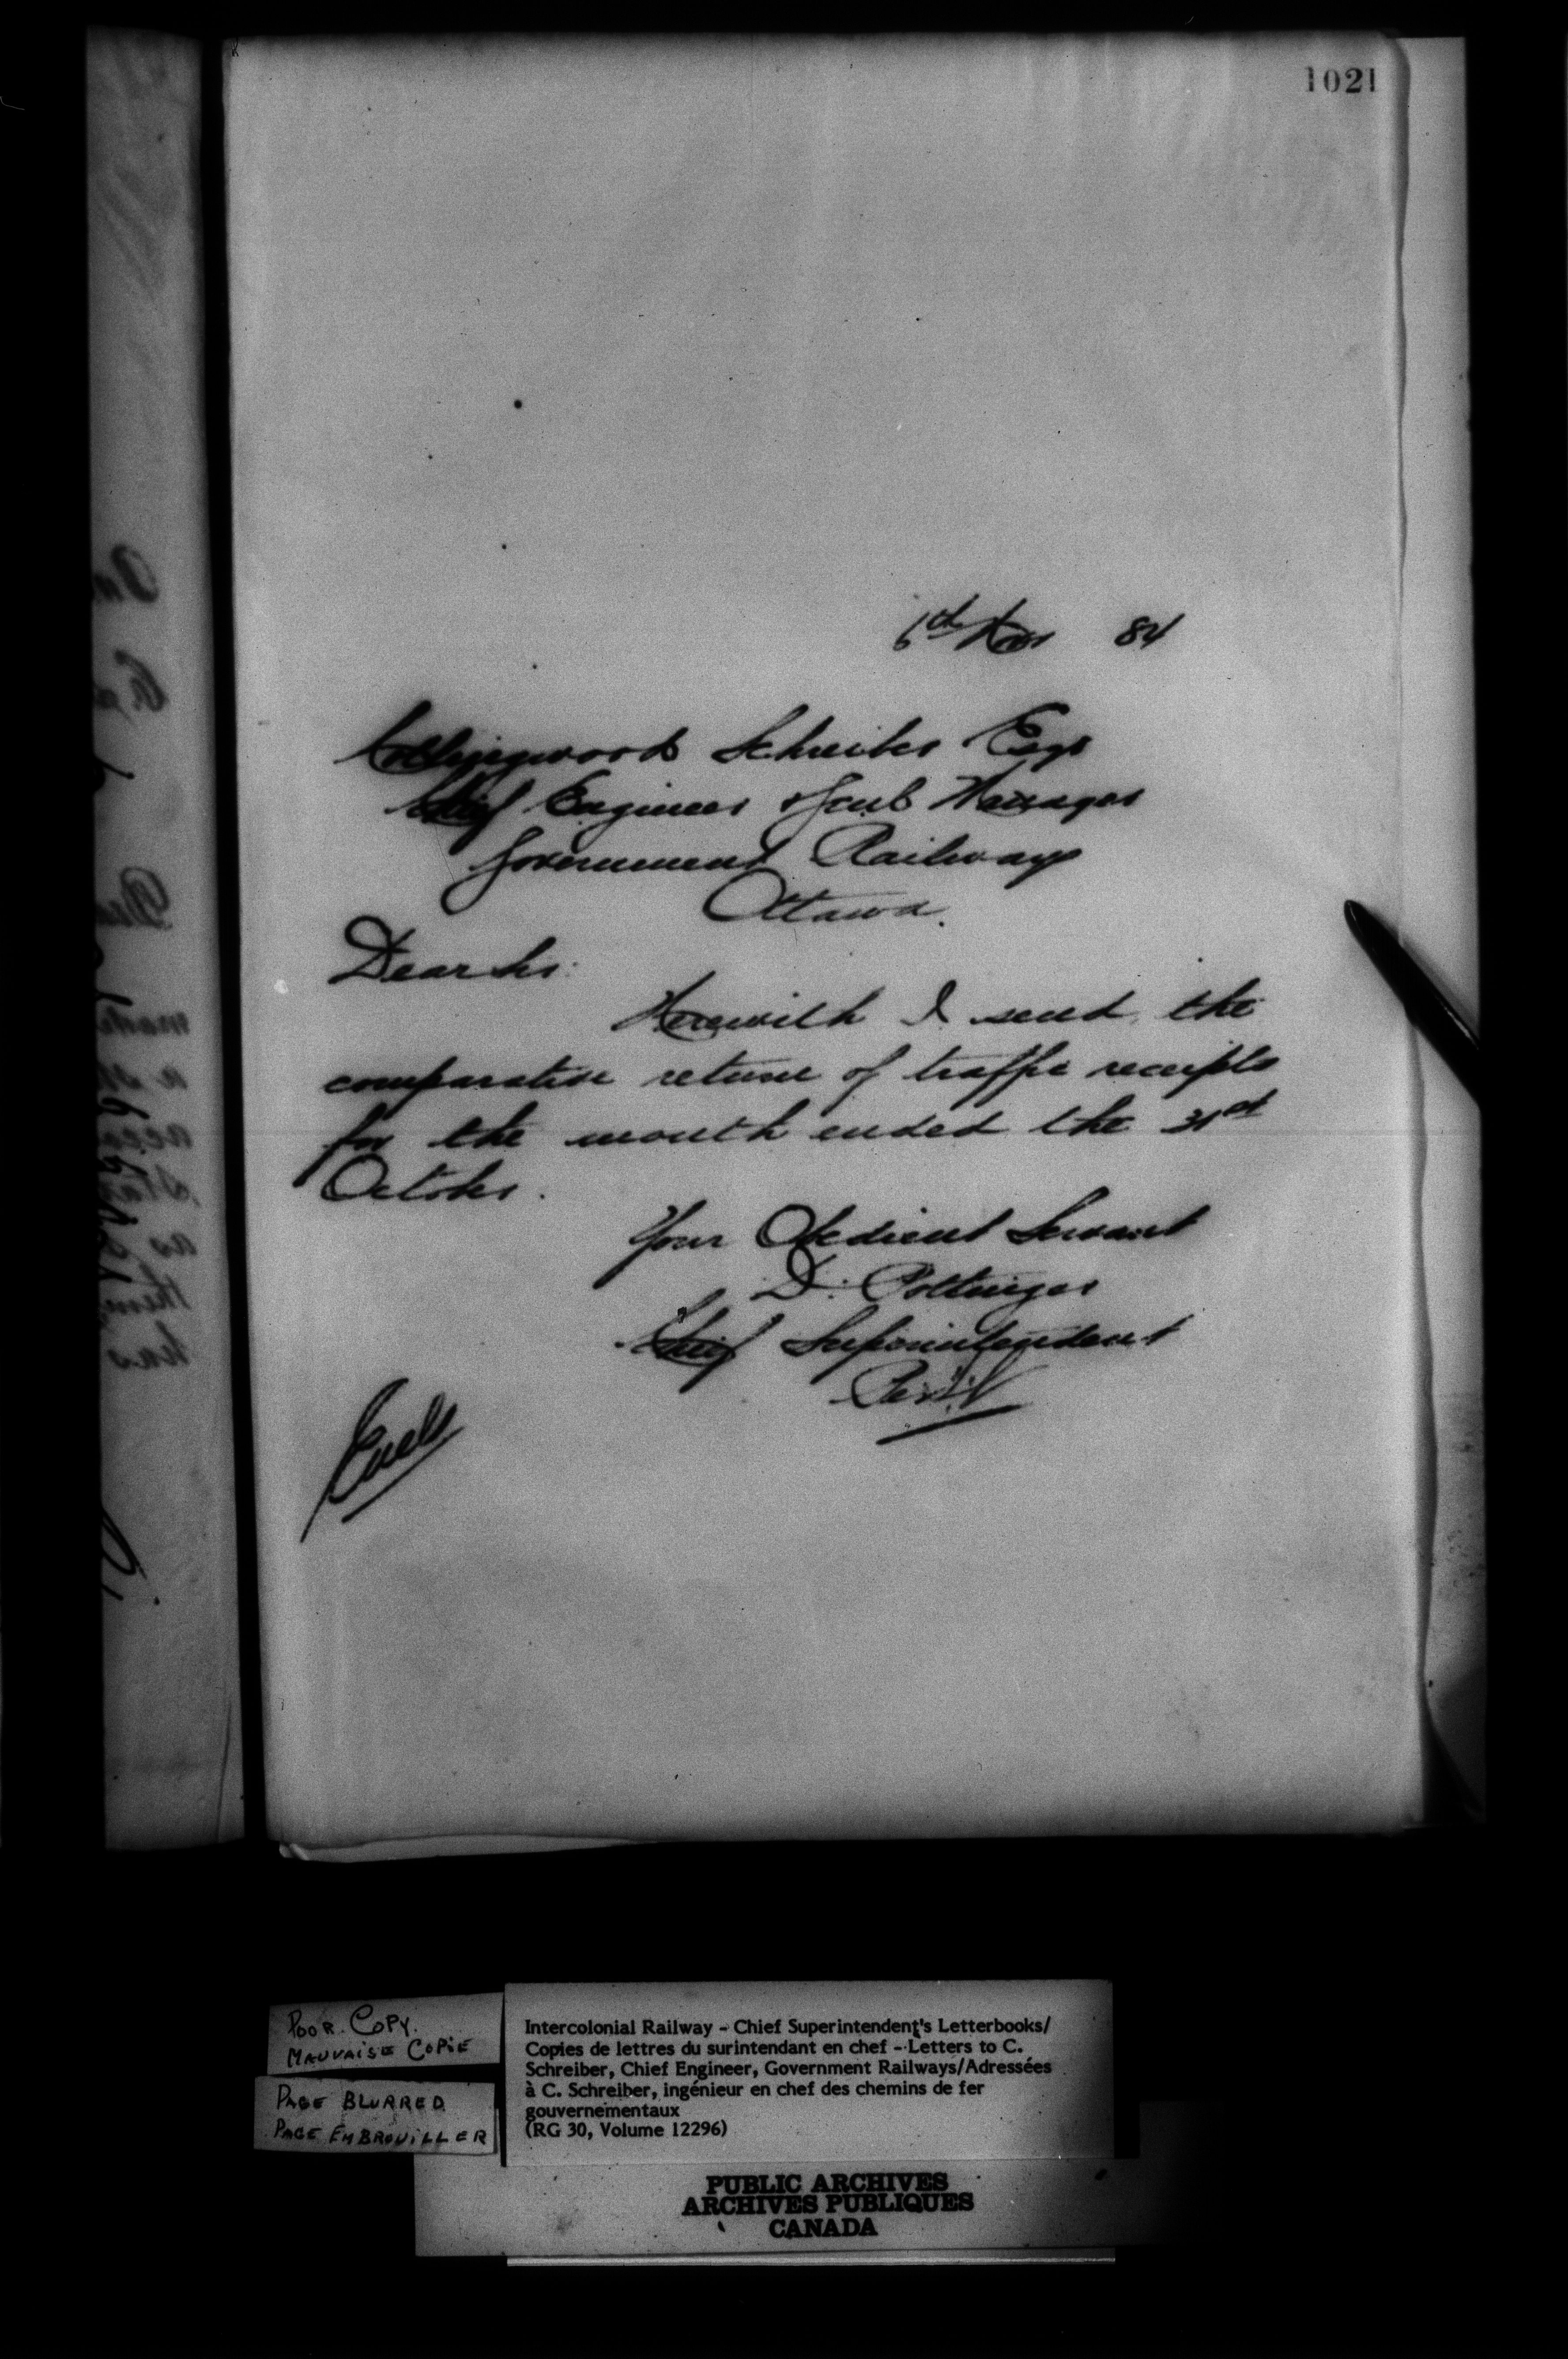 1021
6th Nov 84
Collingwood Schreiber Esqr
Chief Engineer & Genl Manager
Government Railways
Ottawa.
Dear Sir:
Herewith I send the
comparative return of traffic receipts
for the month ended the 31st
October.
Your Obedient Servant
D. Pottinger
Chief Superintendent
Encls
POOR COPY.
MAUVAISE COPIE
PAGE BLURRED
PAGE EMBROUILLER
Intercolonial Railway - Chief Superintendent's Letterbooks/
Copies de lettres du surintendant en chef - Letters to C.
Schreiber, Chief Engineer, Government Railways/Adressées
à C. Schreiber, ingénieur en chef des chemins de fer
gouvernementaux
(RG 30, Volume 12296)
PUBLIC ARCHIVES
ARCHIVES PUBLIQUES
CANADA